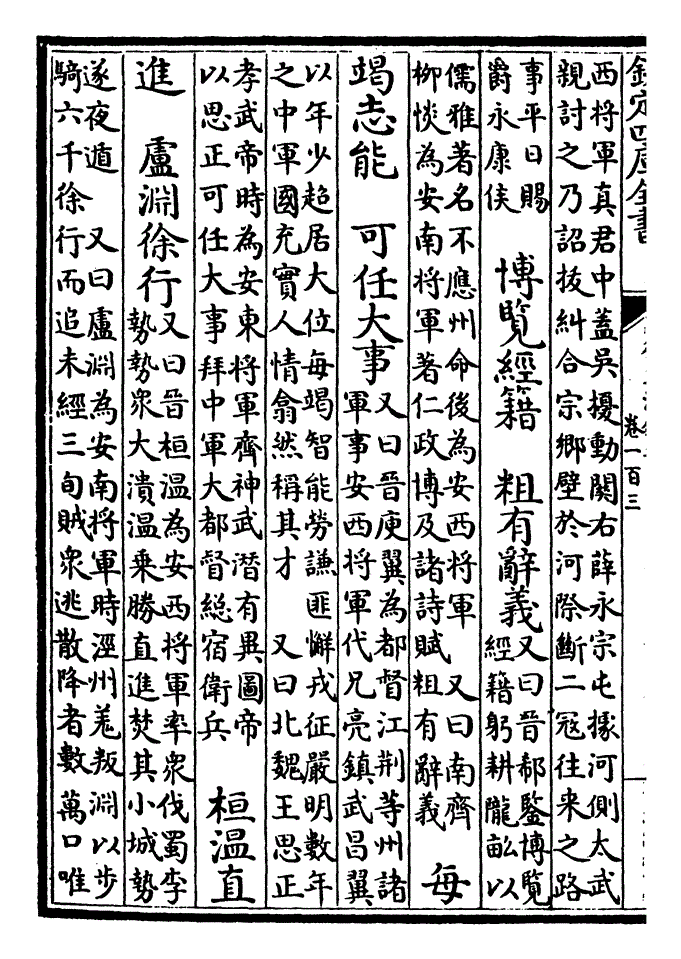 欽定四庫全書
卷一百三
西將軍真君中蓋吳擾動關右薛永宗屯據河側太武
親討之乃詔拔糾合宗鄉壁於河際斷二冦往来之路
事平日賜
爵永康侯
博覽經籍 粗有辭義
又曰晉郗鑒博覽
經籍躬耕隴畝以
儒雅著名不應州命後為安西將軍 又曰南齊
柳惔為安南將軍著仁政博及諸詩賦粗有辭義
每
竭志能 可任大事
又曰晉庾翼為都督江荆等州諸
軍事安西將軍代兄亮鎮武昌翼
以年少超居大位每竭智能勞謙匪懈戎征嚴明數年
之中軍國充實人情翕然稱其才 又曰北魏王思正
孝武帝時為安東將軍齊神武潛有異圖帝
以思正可任大事拜中軍大都督緫宿衛兵
桓温直
進 盧淵徐行
又曰晉桓温為安西將軍率衆伐蜀李
勢勢衆大潰温乗勝直進焚其小城勢
遂夜遁 又曰盧淵為安南將軍時涇州羗叛淵以步
騎六千徐行而追未經三旬賊衆逃散降者數萬口唯